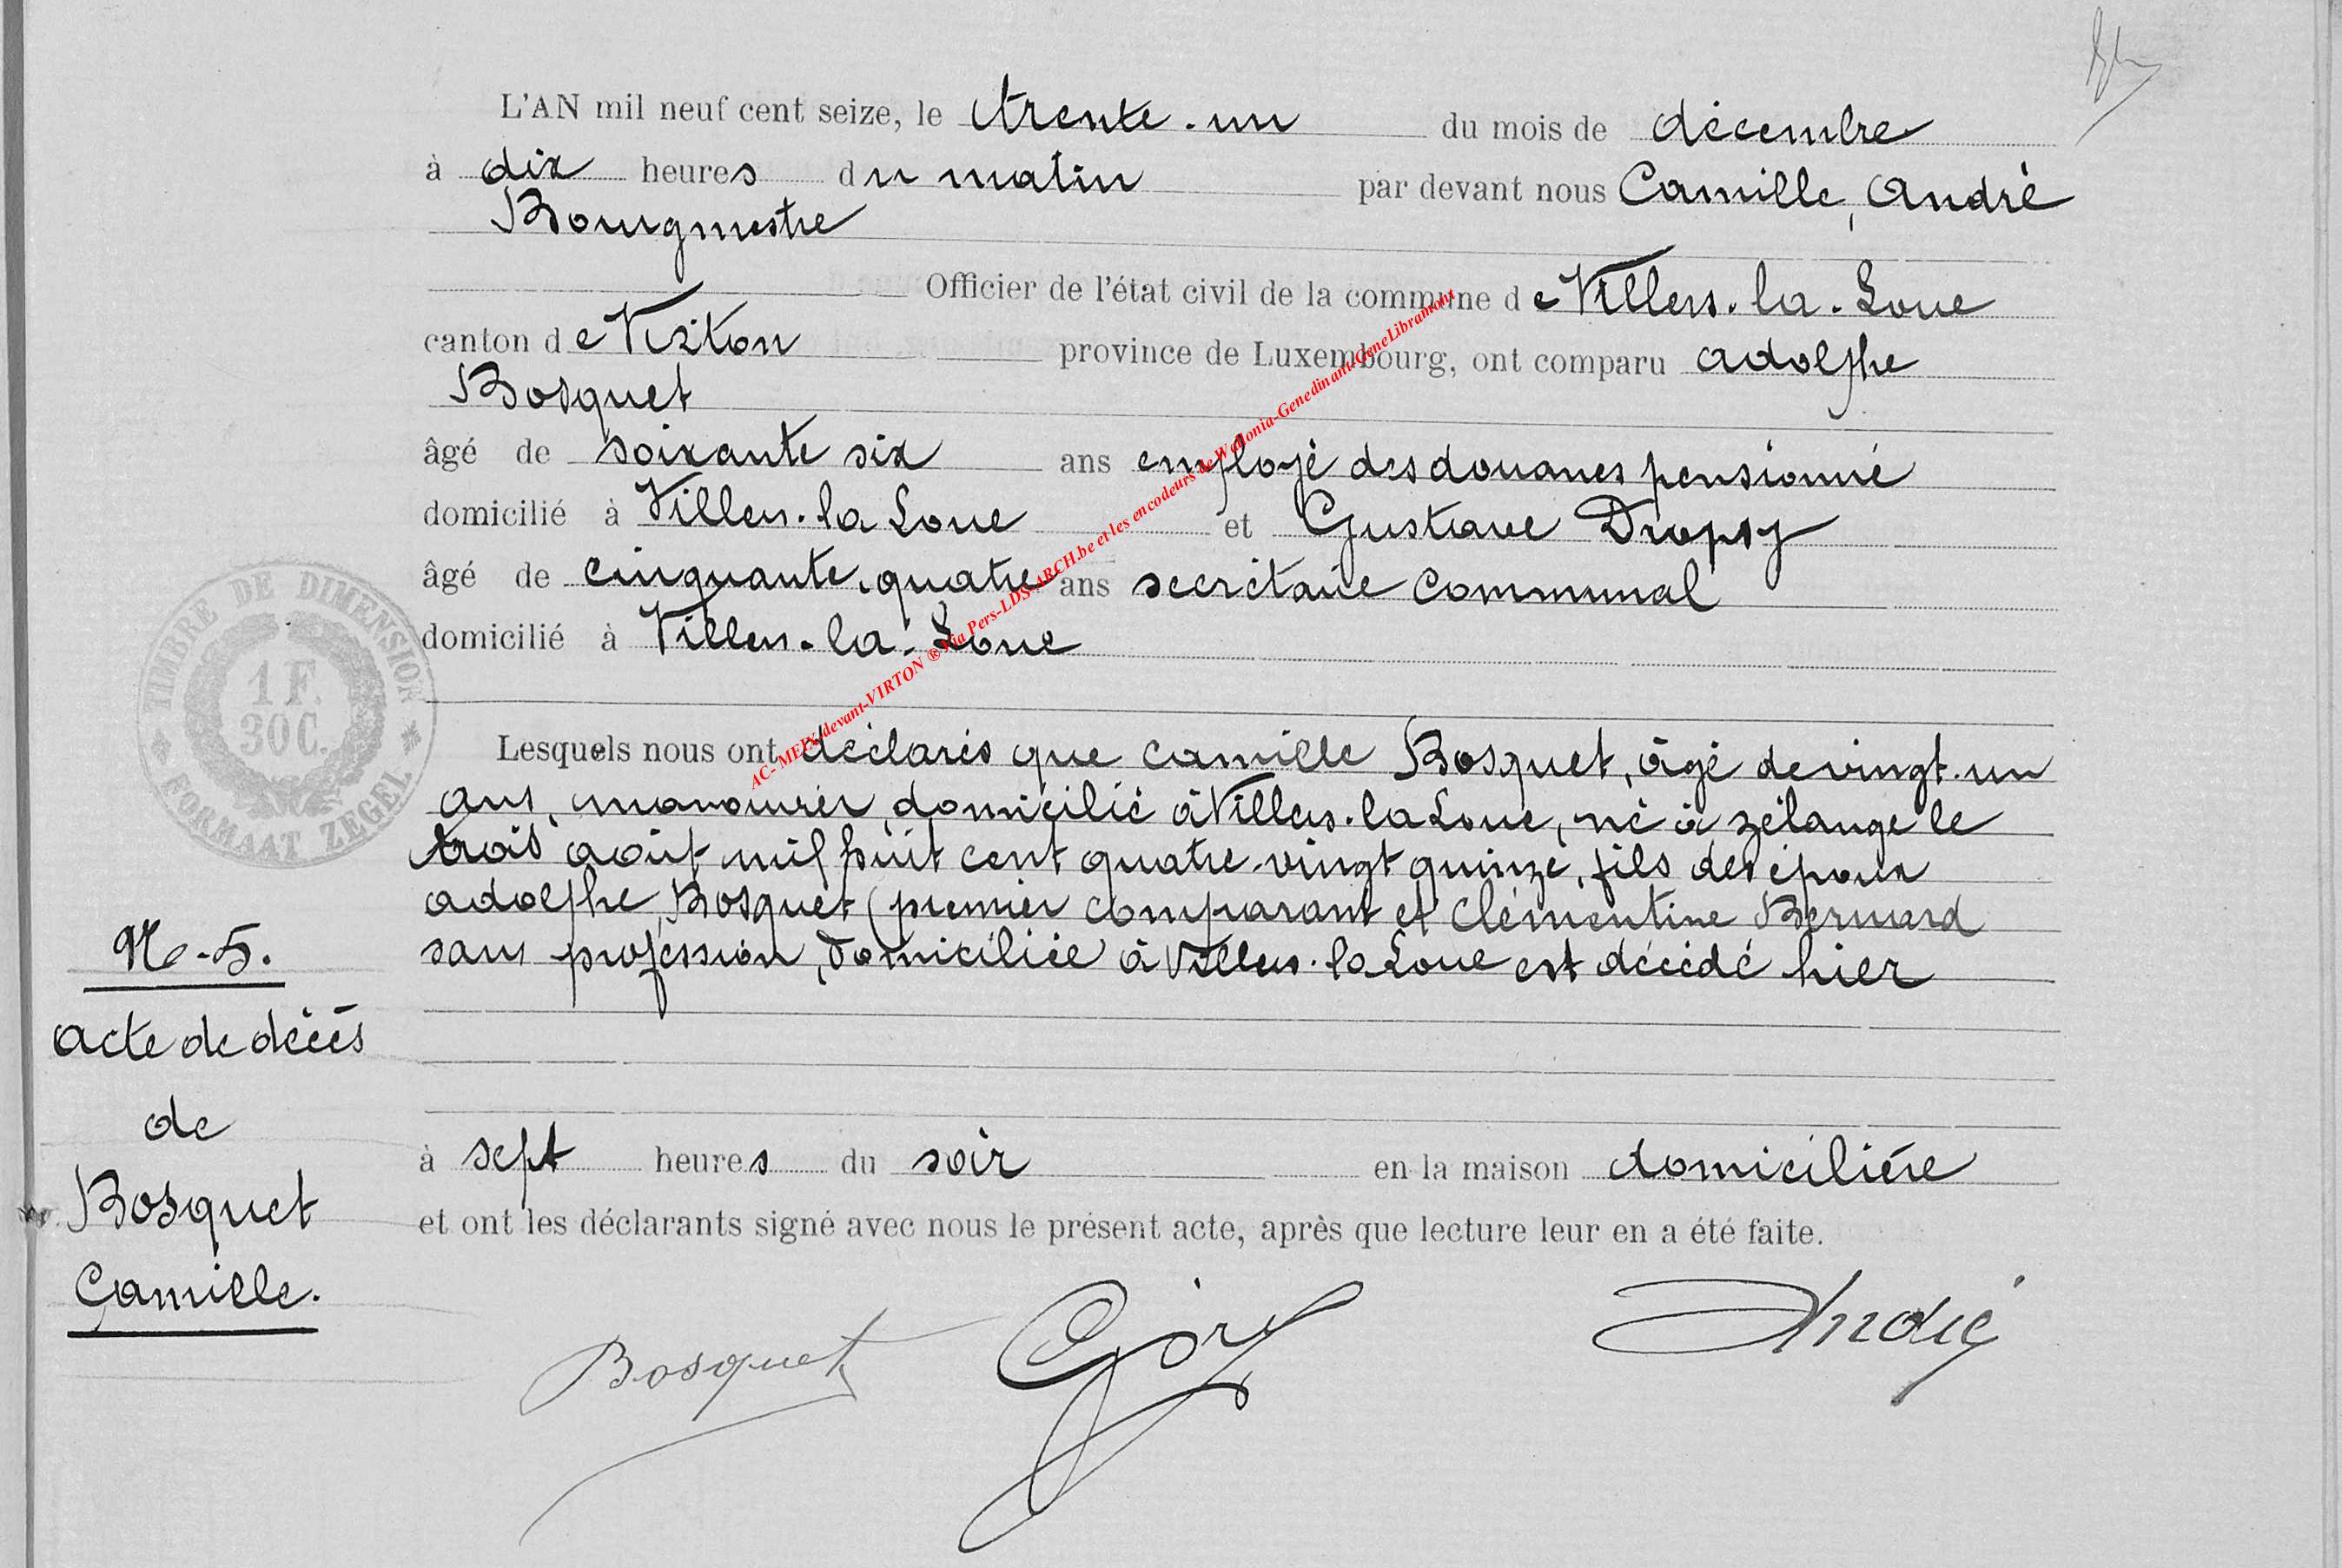 L'AN mil neuf cent seize, le trente-un du mois de décembre
à dix heures du matin par devant nous Camille, André
Bourgmestre
Officier de l'état civil de la commune de Villers-la-Loue
canton de Virton province de Luxembourg, ont comparu Adolphe
Bosquet
âgé de soixante six ans employé des douanes pensionné
domicilié à Villers-la Loue et Gustave Dropsy
âgé de cinquante-quatre ans secrétaire communal
domicilié à Villers-la-Loue
TIMBRE DE DIMENSION
1 F.
30 C.
FORMAAT ZEGEL
Lesquels nous ont déclarés que Camille Bosquet, âgé de vingt-un
ans, manouvrier, domicilié à Villers-la Loue, né à zélange le
trois août mil huit cent quatre-vingt quinze, fils des époux
Adolphe Bosquet (premier comparant et Clémentine Bernard
sans profession, domiciliée à Villers-la Loue est décédé hier
N°-5.
Acte de décès
de
Bosquet
Camille.
à sept heures du soir en la maison domicilière
et ont les déclarants signé avec nous le présent acte, après que lecture leur en a été faite.
Bosquet André
AC- MEIX-devant-VIRTON ® Pers-LDS-ARCH.be et les encodeurs de Wallonia-Genedinant-GeneLibramont